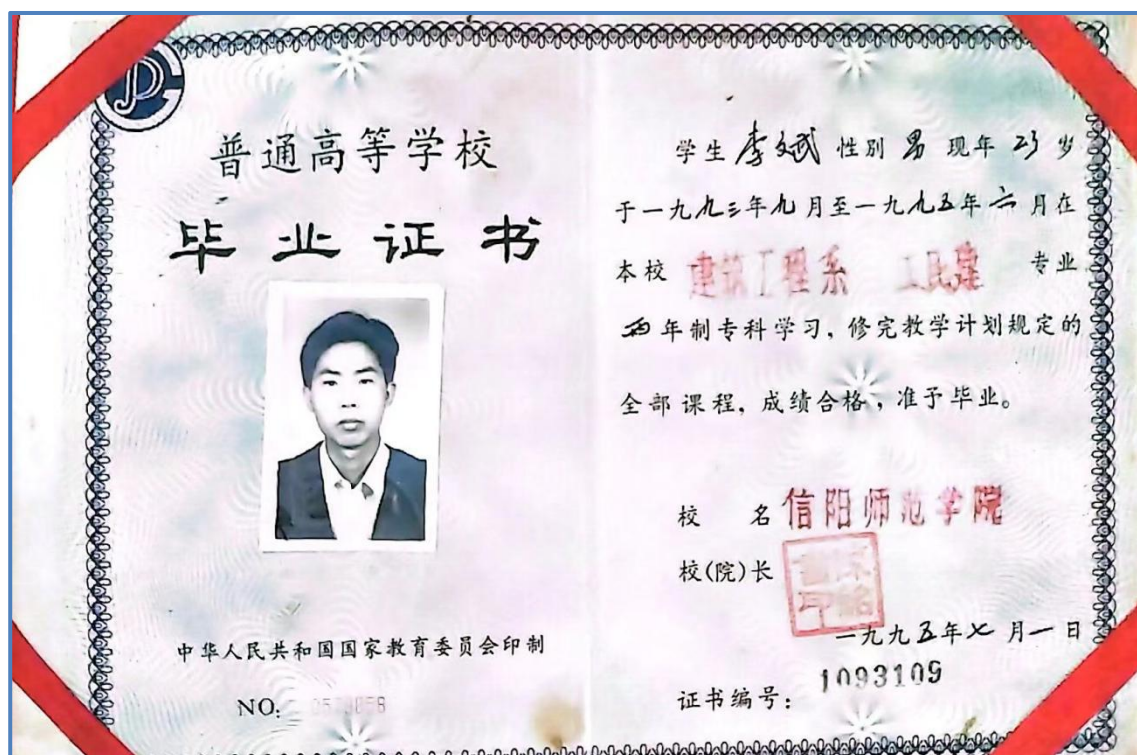 普通高等学校
毕业证书
中华人民共和国国家教育委员会印制
NO:
学生 李文斌 性别 男 现年 23 岁
于一九九三年九月至一九九五年六月在
本校 建筑工程系 工民建 专业
两年制专科学习,修完教学计划规定的
全部课程,成绩合格,准予毕业。
校 名 信阳师范学院
校(院)长
一九九五年七月一日
证书编号: 1093109